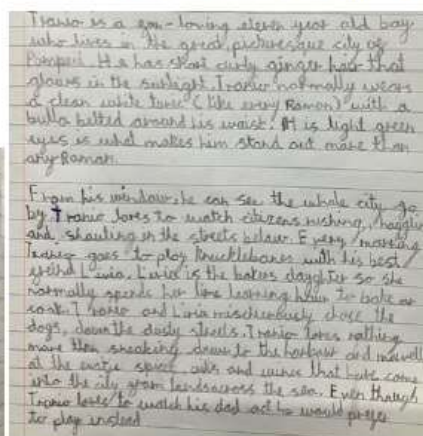 Tranio is a fun-loving eleven year old boy
who lives in the great, picturesque city of
Pompeii. He has short curly ginger hair that
glows in the sunlight. Tranio normally wears
a clean white tunic (like every Roman) with a
bulla belted around his waist. His light green
eyes is what makes him stand out more than
any Roman.
From his window, he can see the whole city go
by. Tranio loves to watch citizens rushing, haggling
and shouting in the streets below. Every morning
Tranio goes to play knucklebones with his best
friend Livia. Livia is the bakers daughter so she
normally spends her time learning how to bake or
cook. Tranio and Livia mischeviously chase the
dogs, down the dusty streets. Tranio loves nothing
more than sneaking down to the harbour and marvell
at the exotic spices, silks and wines that have come
into the city from lands across the sea. Even though
Tranio loves to watch his dad act he would prefer
to play instead